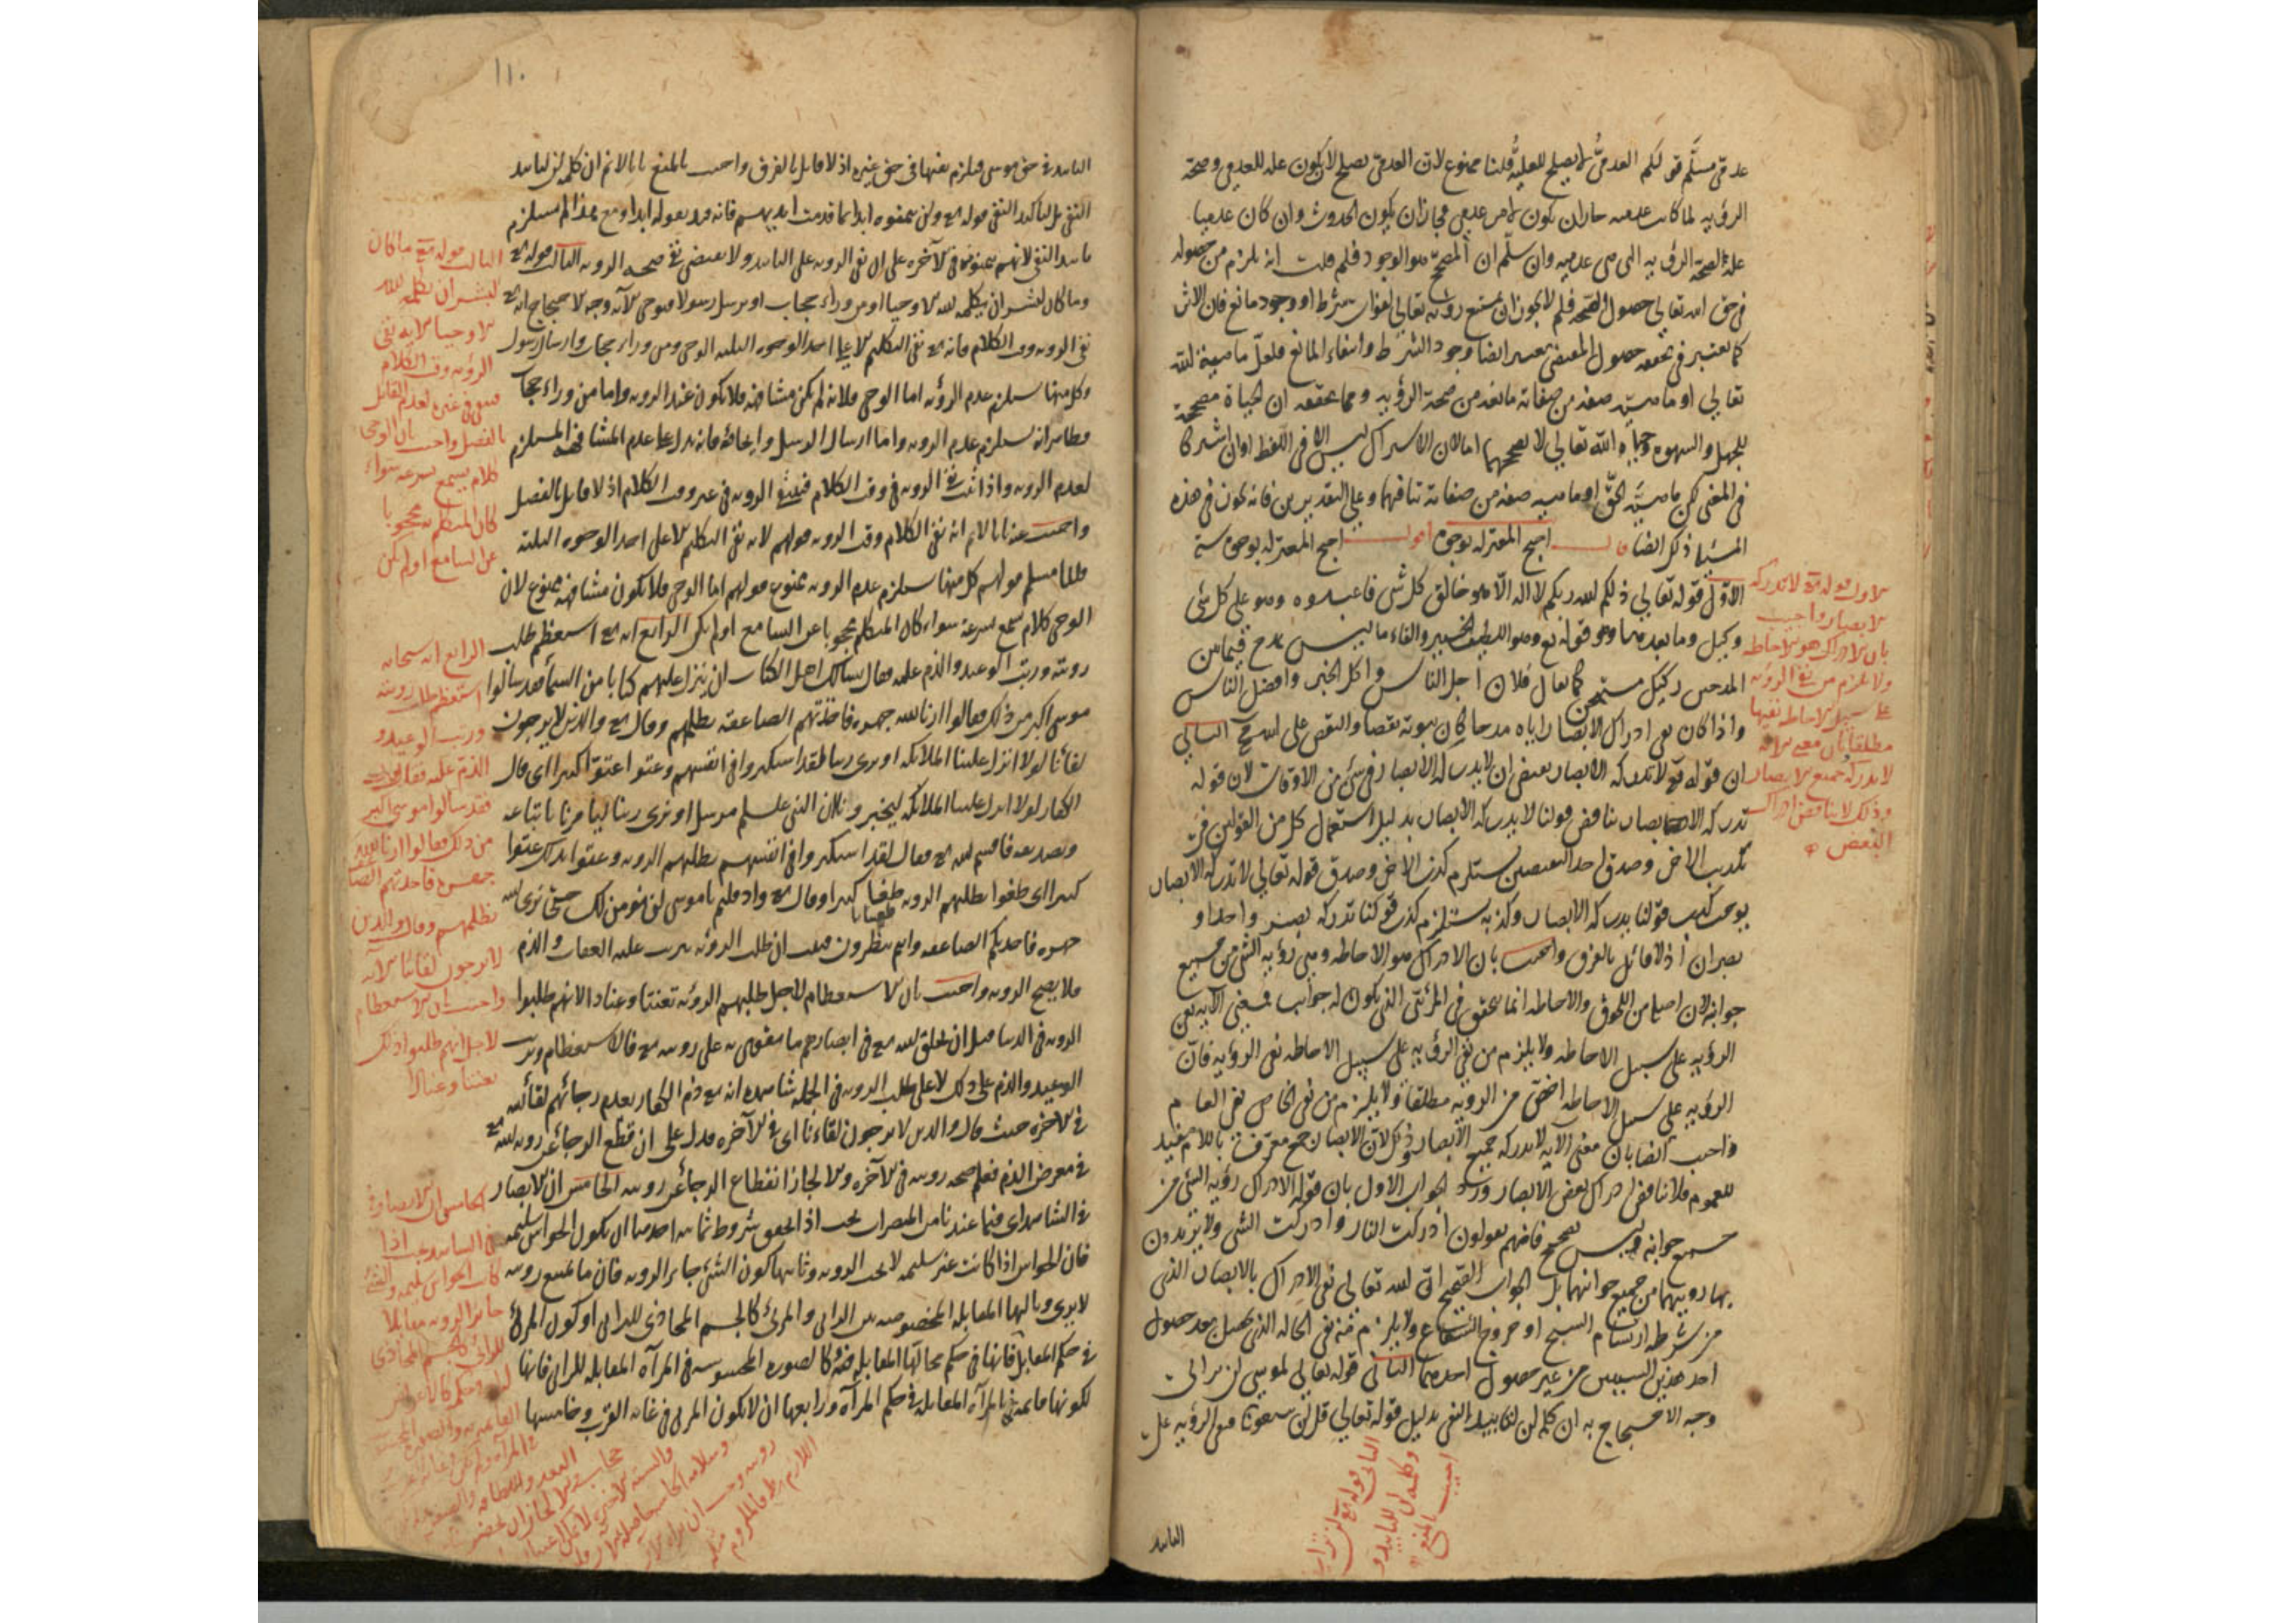 عدمي مسلم قولكم العدمي لا يصلح للعلية قلنا ممنوع لان العدمي يصلح لان يكون علة للعدمي وصحة
الرؤية لما كانت عدمية جاز ان يكون لامر عدمي فجاز ان يكون الحدوث وان كان عدميا
علة لصحة الرؤية التي هي عدمية وان سلم ان المصحح هو الوجود فلم قلت انه يلزم من حصوله
في حق الله تعالى حصول الصحة فلم لا يجوز ان يمتنع رؤيته تعالى لفوات شرط او وجود مانع فان الاثر
كما يعتبر في تحققه حصول المقتضي يعتبر ايضا وجود الشرط وانتفاء المانع فلعل ماهية الله
تعالى او ماهية صفة من صفاته مانعة من صحة الرؤية ومما يحققه ان الحياة مصححة
للجهل والشهوة وحياة الله تعالى لا تصححهما اما لان الاشتراك ليس الا في اللفظ او ان اشتركا
في المعنى لكن ماهية الحق او ماهية صفة من صفاته تنافيهما وعلى التقديرين فانه يكون في هذه
المسئلة ذلك ايضا قال احتج المعتزلة بوجوه اقول احتج المعتزلة بوجوه ستة
الاول قوله تعالى ذلكم الله ربكم لا اله الا هو خالق كل شي فاعبدوه وهو على كل شئ
وكيل وما بعدهما وهو قوله تع وهو اللطيف الخبير والقاء ما ليس بمدح فيما بين
المدحين ركيك مستهجن كما يقال فلان اجل الناس واكل الخبز وافضل الناس
واذا كان نفي ادراك الابصار اياه مدحا كان ثبوته نقصا والنقص على الله مح الثاني
ان قوله تع لا تدركه الابصار يقتضي ان لا يدركه الابصار في شئ من الاوقات لان قوله
تدركه الابصار يناقض قولنا لا يدركه الابصار بدليل استعمال كل من القولين في
تكذيب الاخر وصدق احد النقيضين يستلزم كذب الاخر وصدق قوله تعالى لا تدركه الابصار
يوجب كذب قولنا يدركه الابصار وكذبه يستلزم كذب قولنا تدركه بصر واحد او
بصران اذ لا قائل بالفرق واجيب بان الادراك هو الاحاطة وهي رؤية الشئ من جميع
جوانبه لان اصله من اللحوق والاحاطة انما يتحقق في المرئي الذي يكون له جوانب فمعنى الآية نفي
الرؤية على سبيل الاحاطة ولا يلزم من نفي الرؤية على سبيل الاحاطة نفي الرؤية فان
الرؤية على سبيل الاحاطة اخص من الرؤية مطلقا ولا يلزم من نفي الخاص نفي العام
واجيب ايضا بان معنى الآية لا يدركه جميع الابصار وذلك لان الابصار جمع معرف باللام يفيد
للعموم فلا يناقض ادراك بعض الابصار ورد الجواب الاول بان قوله الادراك رؤية الشئ من
جميع جوانبه ليس بصحيح فانهم يقولون ادركت النار وادركت الشئ ولا يريدون
بها رؤيتهما من جميع جوانبهما بل الجواب الصحيح ان الله تعالى نفى الادراك بالابصار الذي
من شرطه ارتسام الشبح او خروج الشعاع ولا يلزم منه نفي الحالة الذي يحصل بعد حصول
احد هذين السببين من غير حصول احدهما الثاني قوله تعالى لموسى لن تراني
وجه الاحتجاج به ان كلمة لن لتابيد النفي بدليل قوله تعالى قل لن تتبعونا فنفي الرؤية على
التابيد
الاول قوله تع لا تدركه
الابصار واجيب
بان الادراك هو الاحاطة
ولا يلزم من نفي الرؤية
على سبيل الاحاطة نفيها
مطلقا وبان معنى الآية
لا يدركه جميع الابصار
وذلك لا يناقض ادراك
البعض
الثاني قوله تع لن تراني
وكلمة لن للتابيد و
اجيب بالمنع
١١٠
التابيد في حق موسى فيلزم نفيها في حق غيره اذ لا قايل بالفرق واجيب بالمنع بانا لا نم ان كلمة لن لتابيد
النفي بل لتاكيد النفي قوله تع ولن يتمنوه ابدا بما قدمت ايديهم فانه قيد بقوله ابدا ومع هذا لم يستلزم
تابيد النفي لانهم يتمنونه في الآخرة على ان نفي الرؤية على التابيد لا يقتضي نفي صحة الرؤية الثالث قوله تع
وما كان لبشر ان يكلمه الله الا وحيا او من وراء حجاب او يرسل رسولا فيوحي الآية وجه الاحتجاج انه تع
نفي الرؤية وقت الكلام فانه تع نفى التكليم الا على احد الوجوه الثلثة الوحي ومن وراء حجاب وارسال رسول
وكل منها يستلزم عدم الرؤية اما الوحي فلانه لم يكن مشافهة فلا يكون عند الرؤية واما من وراء حجاب
فظاهر انه يستلزم عدم الرؤية واما ارسال الرسل فانه يدل على عدم المشافهة المستلزم
لعدم الرؤية واذا ثبت نفي الرؤية في وقت الكلام فينتفي الرؤية في غير وقت الكلام اذ لا قايل بالفصل
واجيب عنه بانا لا نم انه نفى الكلام وقت الرؤية قولهم لانه نفى التكليم الا على احد الوجوه الثلثة
قلنا مسلم قولهم كل منها يستلزم عدم الرؤية ممنوع قولهم اما الوحي فلا يكون مشافهة ممنوع لان
الوحي كلام يسمع بسرعة سواء كان المتكلم محجوبا عن السامع او لم يكن الرابع انه تع استعظم طلب
رؤيته ورتب الوعيد والذم عليه فقال يسالك اهل الكتاب ان تنزل عليهم كتابا من السماء فقد سالوا
موسى اكبر من ذلك فقالوا ارنا الله جهرة فاخذتهم الصاعقة بظلمهم وقال تع والذين لا يرجون
لقائنا لولا انزل علينا الملائكة او نرى ربنا لقد استكبروا في انفسهم وعتوا عتوا كبيرا اي قال
الكفار لولا انزل علينا الملائكة ليخبرونا بان النبي علسلم مرسل او نرى ربنا ليامرنا باتباعه
وتصديقه فاقسم الله تع فقال لقد استكبروا في انفسهم بطلبهم الرؤية وعتوا بذلك عتوا
كبيرا اي طغوا بطلبهم الرؤية طغيانا كبيرا وقال تع واذ قلتم يا موسى لن نؤمن لك حتى نرى الله
جهرة فاخذتكم الصاعقة وانتم تنظرون فثبت ان طلب الرؤية يترتب عليه العقاب والذم
فلا يصح الرؤية واجيب بان الاستعظام لاجل طلبهم الرؤية تعنتا وعنادا لانهم طلبوا
الرؤية في الدنيا قبل ان يخلق الله تع في ابصارهم ما يقوون به على رؤيته تع فالاستعظام وترتب
الوعيد والذم على ذلك لا على طلب الرؤية في الجملة شاهده انه تع ذم الكفار بعدم رجائهم لقائه
في الآخرة حيث قال والذين لا يرجون لقاءنا اي في الآخرة فدل على ان قطع الرجاء عن رؤية الله تع
في معرض الذم فعلم صحة رؤيته في الآخرة والا لجاز انقطاع الرجاء عن رؤيته الخامس ان الابصار
في الشاهد اي فيما عندنا من المبصرات يجب اذا تحقق شروط ثمانية احدها ان يكون الحواس سليمة
فان الحواس اذا كانت غير سليمة لا يجب الرؤية وثانيها كون الشئ جايز الرؤية فان ما يمتنع رؤيته
لا يرى وثالثها المقابلة المخصوصة بين الرائي والمرئي كالجسم المحاذي للرائي او كون المرئي
في حكم المقابل فانها في حكم محالها المقابلة وكالصورة المحسوسة في المرآة المقابلة للرائي فانها
لكونها قايمة في المرآة المقابلة في حكم المرآة ورابعها ان لا يكون المرئي في غاية القرب وخامسها
الثالث قوله تع ما كان
لبشر ان يكلمه الله
الا وحيا الآية نفى
الرؤية وقت الكلام
فنفي في غيره لعدم القائل
بالفصل واجيب بان الوحي
كلام يسمع بسرعة سواء
كان المتكلم به محجوبا
عن السامع او لم يكن
الرابع انه سبحانه
استعظم طلب رؤيته
ورتب الوعيد و
الذم عليه فقال
فقد سالوا موسى اكبر
من ذلك فقالوا ارنا الله
جهرة فاخذتهم الصاعقة
بظلمهم وقال والذين
لا يرجون لقائنا الآية
واجيب بان الاستعظام
لاجل انهم طلبوا ذلك
تعنتا وعنادا
الخامس ان الابصار
في الشاهد يجب اذا
كانت الحواس سليمة والشئ
جائز الرؤية مقابلا
للرائي كالجسم المحاذي